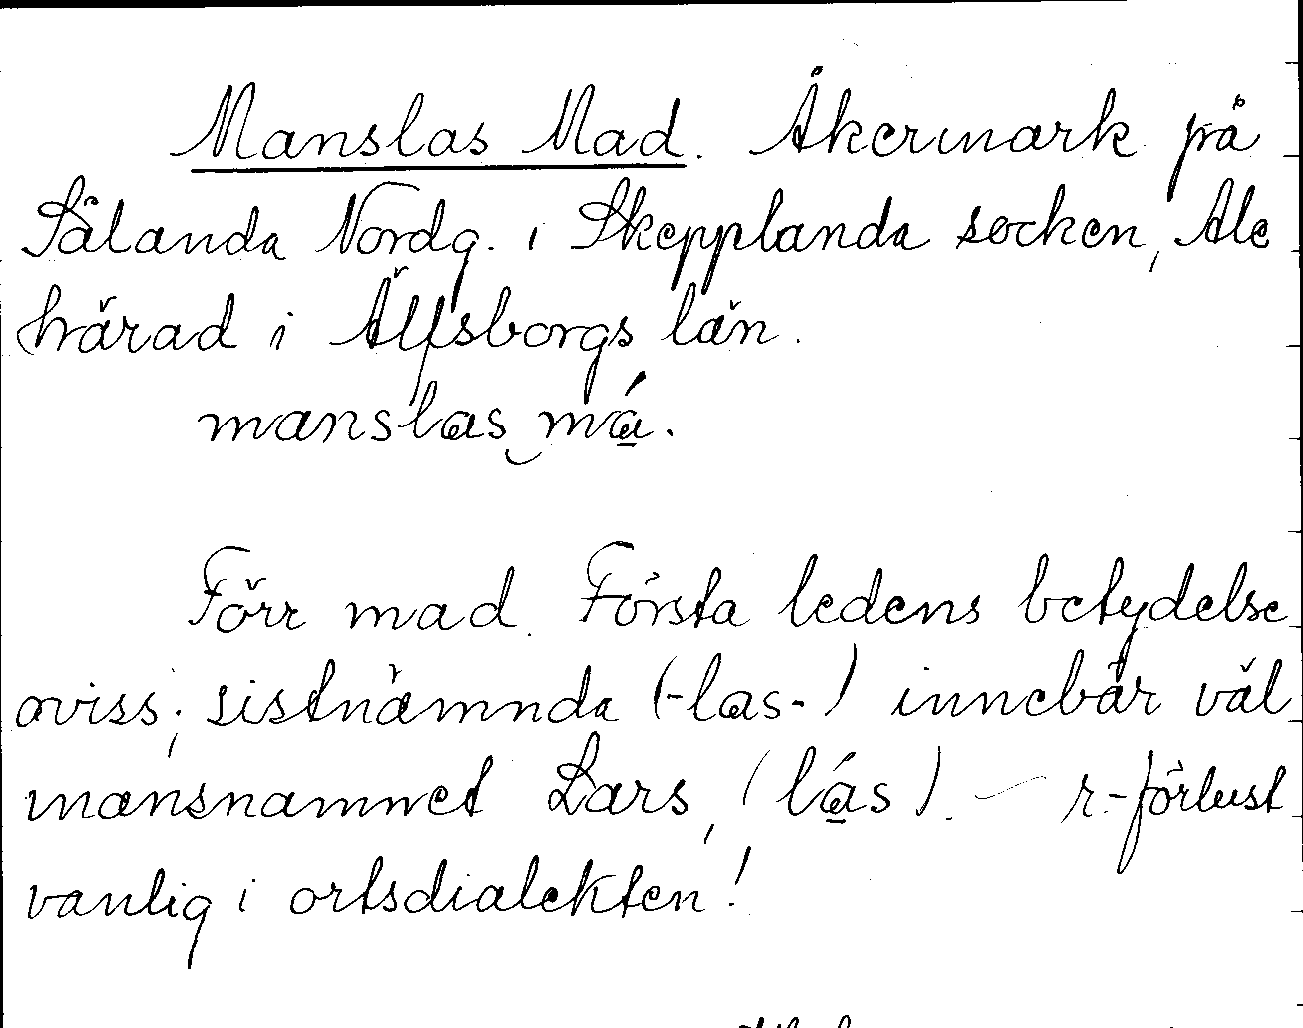 Manslas Mad. Åkermark på
Sålanda Nordg. i Skepplanda socken, Ale
härad i Älfsborgs län.
manslas má.
Förr mad. Första ledens betydelse
oviss; sistnämnda (-las-) innebär väl
mansnamnet Lars, (lás). - r-förlust
vanlig i ortsdialekten!